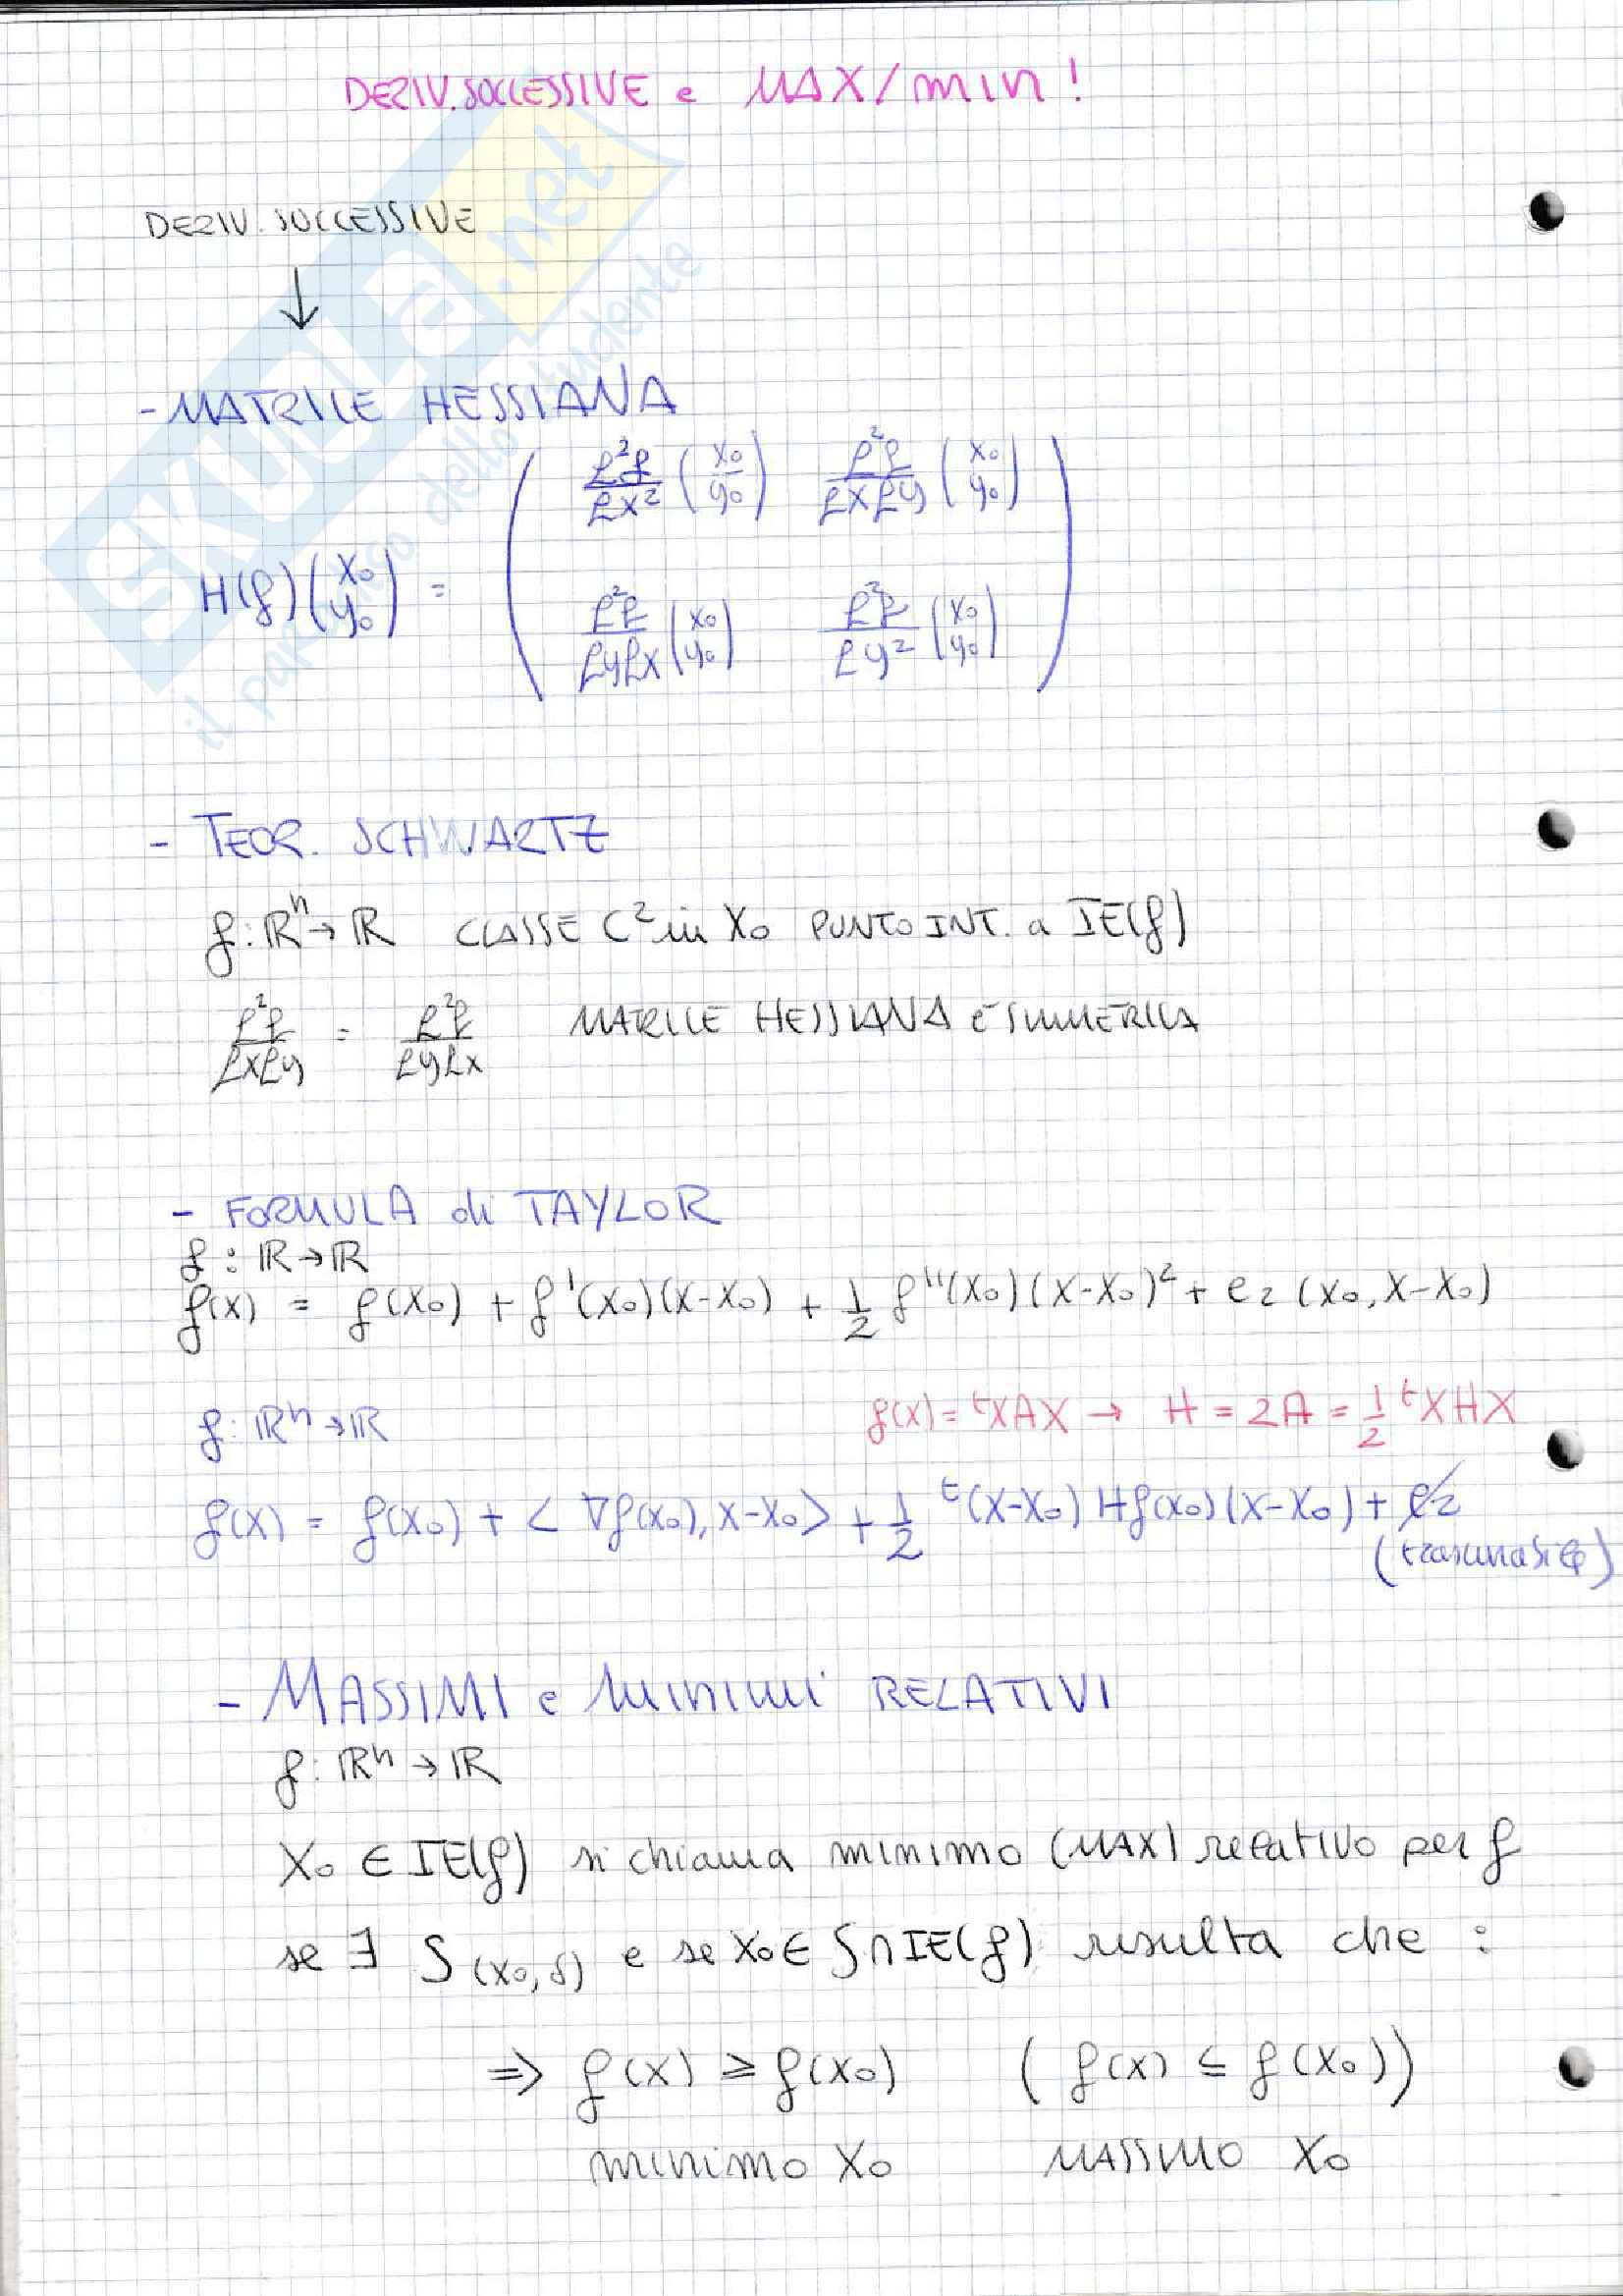 DERIV. SUCCESSIVE e MAX/min!
DERIV. SUCCESSIVE
↓
- MATRICE HESSIANA
H(f)(x₀ y₀) = ( ∂²f/∂x² (x₀ y₀) ∂²f/∂x∂y (x₀ y₀)
∂²f/∂y∂x (x₀ y₀) ∂²f/∂y² (x₀ y₀) )
- TEOR. SCHWARTZ
f: ℝⁿ → ℝ CLASSE C² in X₀ PUNTO INT. a IE(f)
∂²f/∂x∂y = ∂²f/∂y∂x MATRICE HESSIANA è SIMMETRICA
- FORMULA di TAYLOR
f: ℝ → ℝ
f(x) = f(x₀) + f'(x₀)(x-x₀) + 1/2 f''(x₀)(x-x₀)² + e₂(x₀, x-x₀)
f: ℝⁿ → ℝ f(x) = ᵗXAX → H = 2A = 1/2 ᵗXHX
f(x) = f(x₀) + < ∇f(x₀), x-x₀ > + 1/2 ᵗ(x-x₀) Hf(x₀)(x-x₀) + e₂
- MASSIMI e minimi RELATIVI
f: ℝⁿ → ℝ
X₀ ∈ IE(f) si chiama minimo (MAX) relativo per f
se ∃ S(x₀,δ) e se x₀ ∈ S ∩ IE(f) risulta che :
⇒ f(x) ≥ f(x₀) ( f(x) ≤ f(x₀))
minimo X₀ MASSIMO X₀
SKUOLA.net
il paradiso dello studente